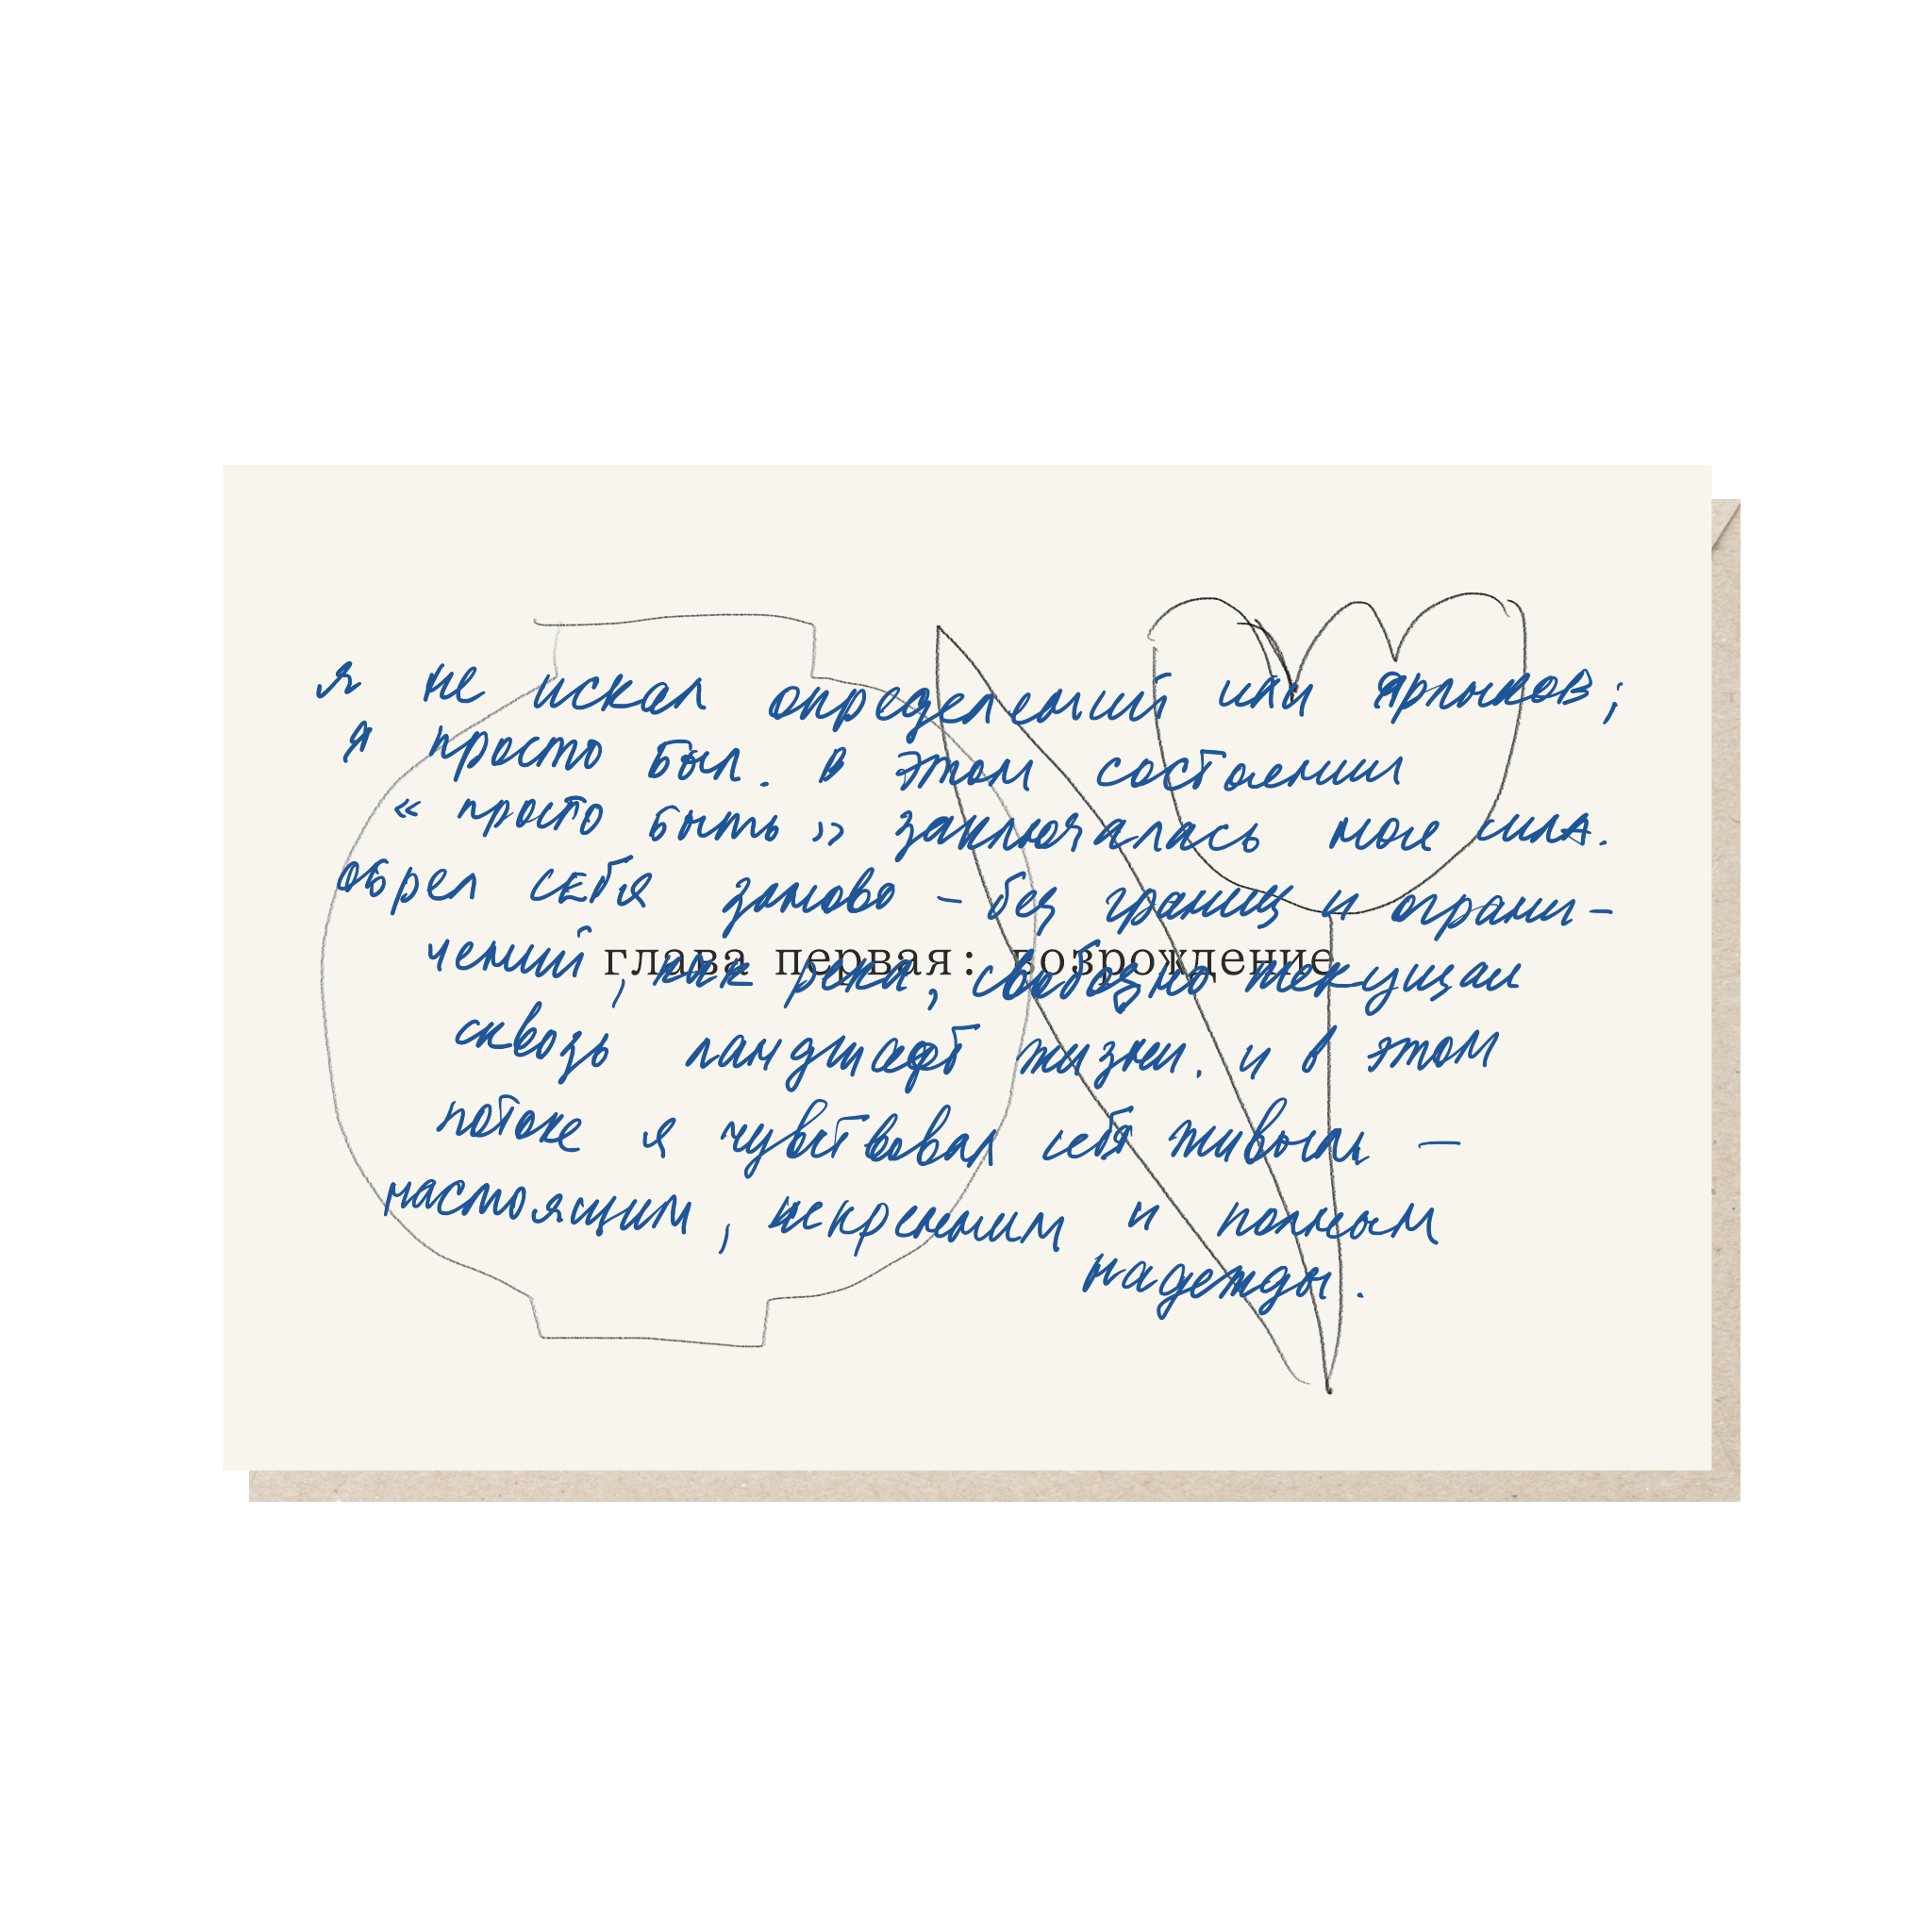 я не искал определений или ярлыков;
я просто был. в этом состоянии
« просто быть » заключалась моя силА.
обрел себя заново – без границ и ограни-
чений, как река, свободно текущая
глава первая: возрождение
сквозь ландшафт жизни. и в этом
потоке я чувствовал себя живым —
настоящим, искренним и полным
надежды.